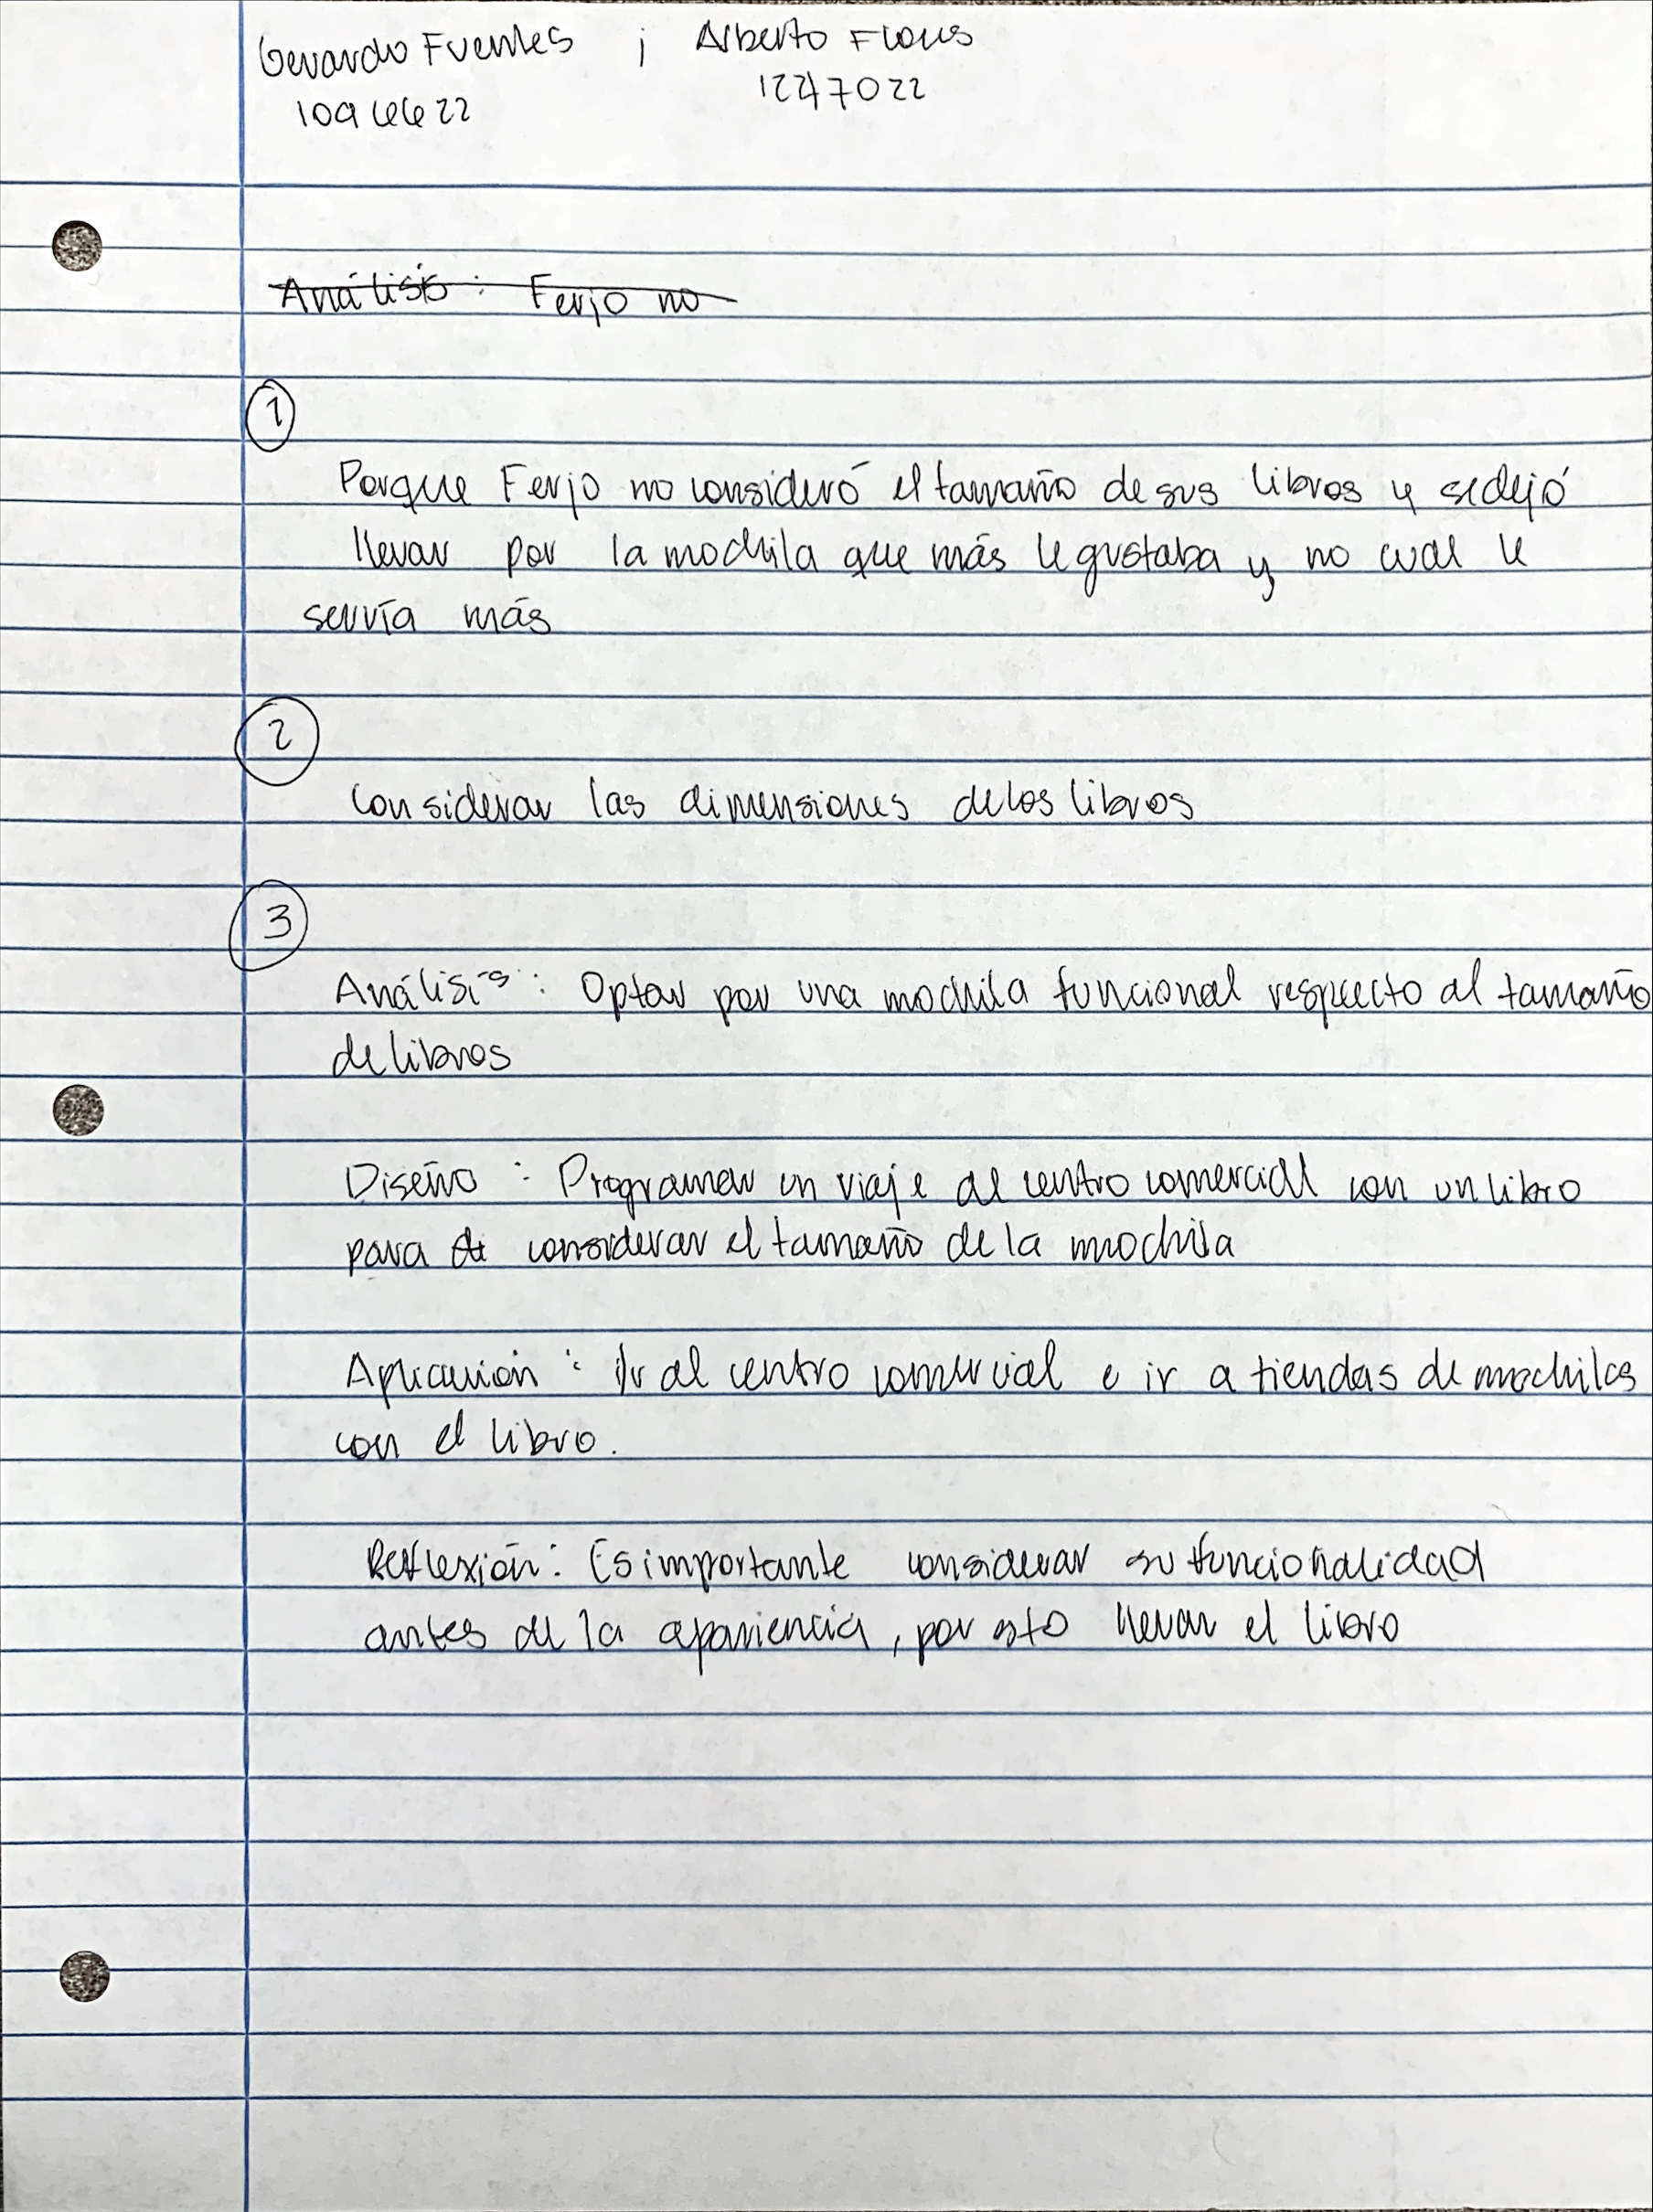 Gerardo Fuentes ; Alberto Flores
1096622 1247022
Análisis : Ferjo no
1
Porque Ferjo no consideró el tamaño de sus libros y se dejó
llevar por la mochila que más le gustaba y no cual le
servía más
2
Considerar las dimensiones de los libros
3
Análisis : Optar por una mochila funcional respecto al tamaño
de libros
Diseño : Programar un viaje al centro comercial con un libro
para considerar el tamaño de la mochila
Aplicación : Ir al centro comercial e ir a tiendas de mochilas
con el libro.
Reflexión : Es importante considerar su funcionalidad
antes de la apariencia, por esto llevar el libro